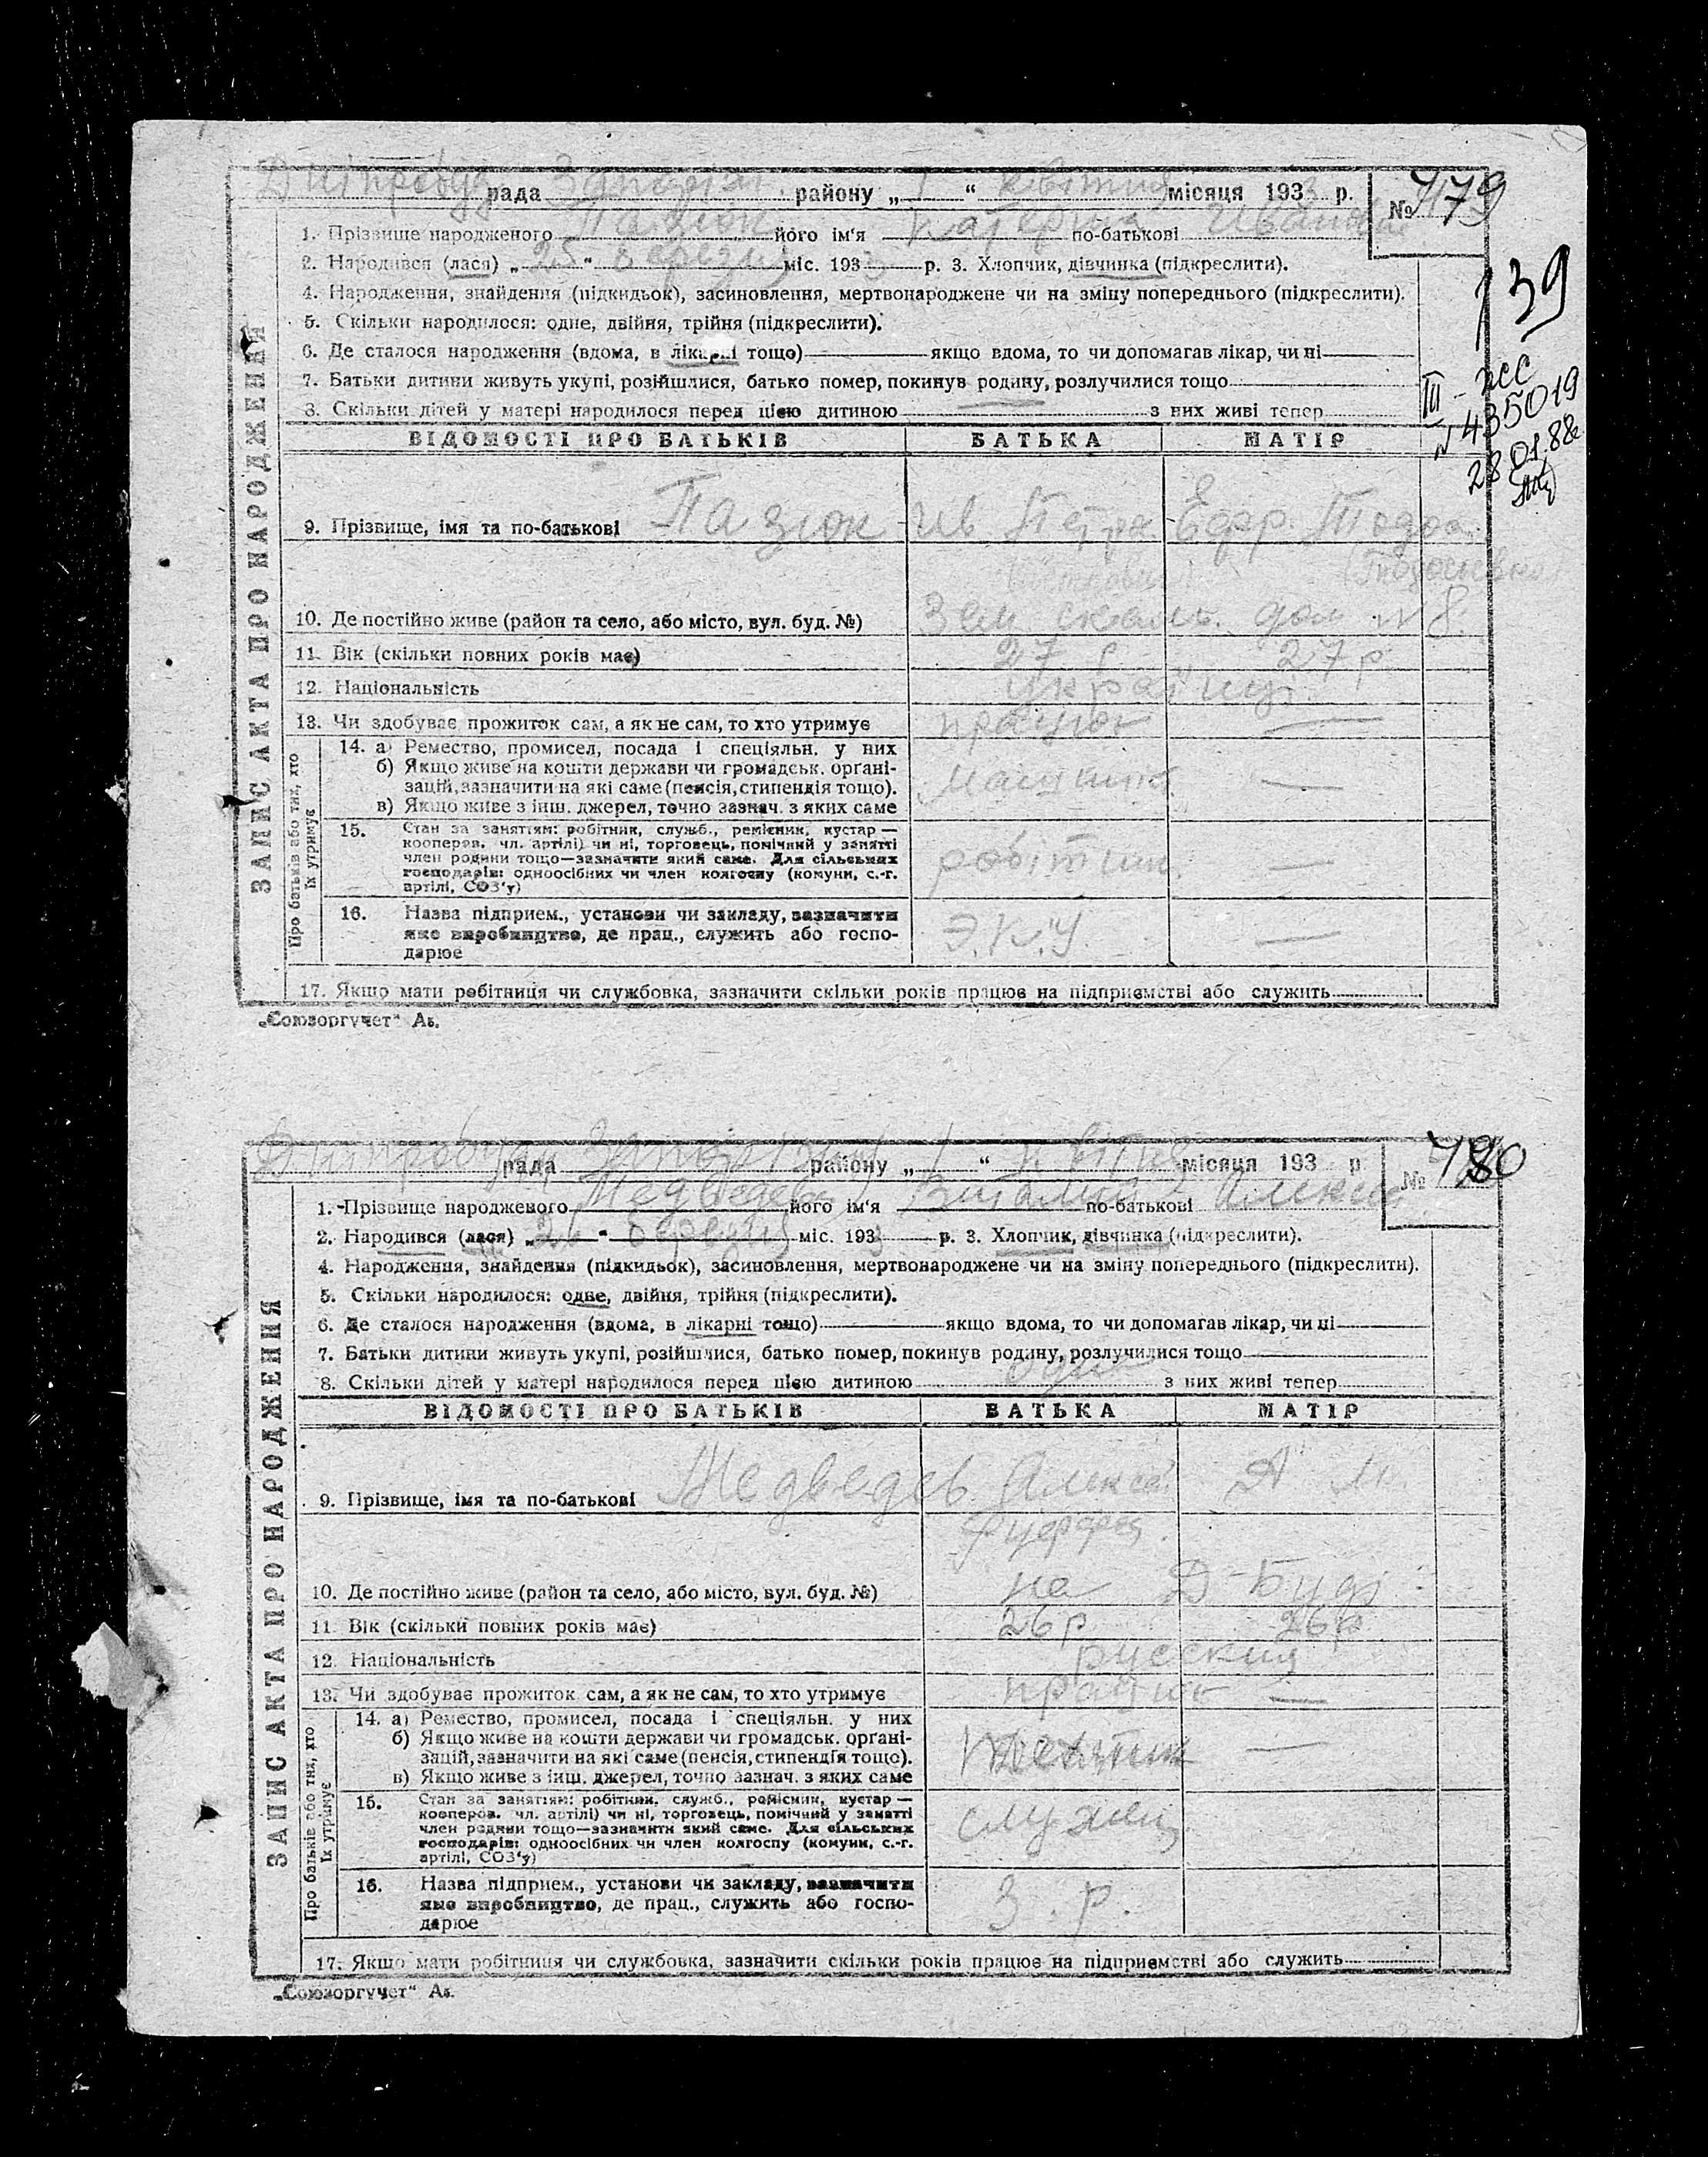 рада района „ 1 “ квітня місяця 1933 р.
№ 779
1. Прізвище народженого Пазюк його ім'я Катерина по-батькові Иванов
2. Народився (лася) „ 25 “ березня міс. 1933 р. 3. Хлопчик, дівчинка (підкреслити).
4. Народження, знайдення (підкидьок), засиновлення, мертвонароджене чи на зміну попереднього (підкреслити).
5. Скільки народилося: одне, двійня, трійня (підкреслити).
6. Де сталося народження (вдома, в лікарні тощо) якщо вдома, то чи допомагав лікар, чи ні
7. Батьки дитини живуть укупі, розійшлися, батько помер, покинув родину, розлучилися тощо
8. Скільки дітей у матері народилося перед цією дитиною з них живі тепер
139
III - ЖС
N 435019
28.01.88г
ЗАПИС АКТА ПРО НАРОДЖЕННЯ
ВІДОМОСТІ ПРО БАТЬКІВ БАТЬКА МАТІР
9. Прізвище, імя та по-батькові Пазюк Ив Петр Ефр. Тодос
(Петрович) (Тодосиевна)
10. Де постійно живе (район та село, або місто, вул. буд. №) дом № 8.
11. Вік (скільки повних років має) 27 р 27 р.
12. Національність українці
13. Чи здобуває прожиток сам, а як не сам, то хто утримує працює —
Про батьків або тих, хто їх утримує
14. а) Ремество, промисел, посада і спеціяльн. у них
б) Якщо живе на кошти держави чи громадськ. органі-
зацій, зазначити на які саме (пенсія, стипендія тощо). Машинист —
в) Якщо живе з інш. джерел, точно зазнач. з яких саме
15. Стан за заняттям: робітник, служб., ремісник, кустар —
коопером. чл. артілі) чи ні, торговець, помічний у занятті
член родини тощо—зазначити який саме. Для сільських
господарів: одноосібних чи член колгоспу (комуни, с.-г.
артілі, СОЗ'у) робітник —
16. Назва підприем., установи чи закладу, зазначити
яке виробництво, де прац., служить або госпо-
дарює —
17. Якщо мати робітниця чи службовка, зазначити скільки років працює на підприємстві або служить
„Союзоргучет“ Ав.
рада района „ 1 “ квітня місяця 193 р
№ 780
1. Прізвище народженого Медведев його ім'я Виталий по-батькові Алексе
2. Народився (лася) „ 26 “ березня міс. 1933 р. 3. Хлопчик, дівчинка (підкреслити).
4. Народження, знайдення (підкидьок), засиновлення, мертвонароджене чи на зміну попереднього (підкреслити).
5. Скільки народилося: одне, двійня, трійня (підкреслити).
6. Де сталося народження (вдома, в лікарні тощо) якщо вдома, то чи допомагав лікар, чи ні
7. Батьки дитини живуть укупі, розійшлися, батько помер, покинув родину, розлучилися тощо
8. Скільки дітей у матері народилося перед цією дитиною з них живі тепер
ЗАПИС АКТА ПРО НАРОДЖЕННЯ
ВІДОМОСТІ ПРО БАТЬКІВ БАТЬКА МАТІР
9. Прізвище, імя та по-батькові Медведев Алексе А М
10. Де постійно живе (район та село, або місто, вул. буд. №) на Д-Буді
11. Вік (скільки повних років має) 26 р 26 р
12. Національність русские
13. Чи здобуває прожиток сам, а як не сам, то хто утримує працює —
Про батьків або тих, хто їх утримує
14. а) Ремество, промисел, посада і спеціяльн. у них
б) Якщо живе на кошти держави чи громадськ. органі-
зацій, зазначити на які саме (пенсія, стипендія тощо). —
в) Якщо живе з інш. джерел, точно зазнач. з яких саме
15. Стан за заняттям: робітник, служб., ремісник, кустар —
коопером. чл. артілі) чи ні, торговець, помічний у занятті
член родини тощо—зазначити який саме. Для сільських
господарів: одноосібних чи член колгоспу (комуни, с.-г.
артілі, СОЗ'у) служащ
16. Назва підприем., установи чи закладу, зазначити
яке виробництво, де прац., служить або госпо-
дарює З. р.
17. Якщо мати робітниця чи службовка, зазначити скільки років працює на підприємстві або служить
„Союзоргучет“ Ав.